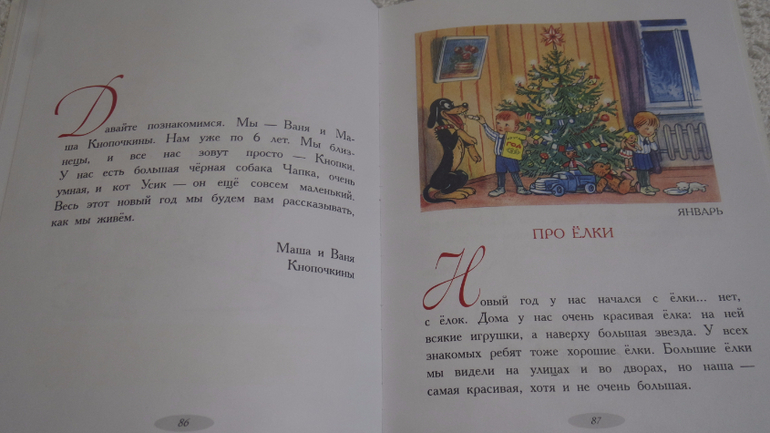 Давайте познакомимся. Мы — Ваня и Ма-
ша Кнопочкины. Нам уже по 6 лет. Мы близ-
нецы, и все нас зовут просто — Кнопки.
У нас есть большая чёрная собака Чапка, очень
умная, и кот Усик — он ещё совсем маленький.
Весь этот новый год мы будем вам рассказывать,
как мы живём.
Маша и Ваня
Кнопочкины
86
ЯНВАРЬ
ПРО ЁЛКИ
Новый год у нас начался с ёлки... нет,
с ёлок. Дома у нас очень красивая ёлка: на ней
всякие игрушки, а наверху большая звезда. У всех
знакомых ребят тоже хорошие ёлки. Большие ёлки
мы видели на улицах и во дворах, но наша —
самая красивая, хотя и не очень большая.
87